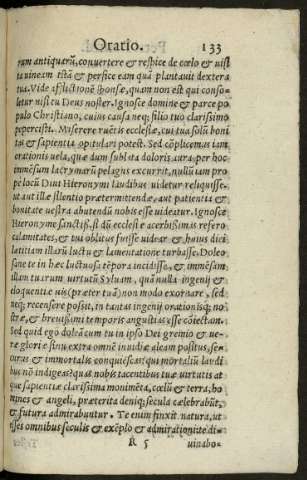 Oratio. 133
rum antiquarũ, convertere & respice de cœlo & uisi
ta uineam istã & perfice eam quã plantauit dextera
tua. Vide afflictionẽ sponsæ, quam non est qui conso-
letur nisi tu Deus noster. Ignosce domine & parce po
pulo Christiano, cuius causa neq; filio tuo clarissimo
pepercisti. Miserere ruẽtis ecclesiæ, cui tua solũ boni
tas & sapientia opitulari potest. Sed cõplicemus iam
orationis uela, quæ dum sublata doloris aura, per hoc
immẽsum lacrymarũ pelagus excurrit, nullũ iam pro
pe locũ Diui Hieronymi laudibus uidetur reliquisse.
ut aut illæ silentio prætermittendæ, aut patientia &
bonitate uestra abutendũ nobis esse uideatur. Ignosce
Hieronyme sanctiss. si dũ ecclesiæ acerbissimas refero
calamitates, & tui oblitus fuisse uidear & huius diei
letitiam illarũ luctu & lamentatione turbasse. Doleo
sane te in hæc luctuosa tẽpora incidisse, & immẽsam
istam tuarum uirtutũ Syluam, quã nulla ingenij &
eloquentiæ uis (præter tuã) non modo exornare, sed
neq; recensere possit, in tantas ingenij orationisq; no-
stræ, & breuissimi temporis angustias esse cõiectam.
Sed quid ego doleã cum tu in ipso Dei gremio & ue-
ræ gloriæ sinu extra omnẽ inuidiæ aleam positus, se-
curus & immortalis conquiescas: qui mortaliũ laudi
bus nõ indigeas: qua nobis tacentibus tuæ uirtutis at
que sapientiæ clarissima monimẽta, cœlũ & terra, ho
mines & angeli, præterita deniq; secula cælebrabũt,
& futura admirabuntur. Te enim finxit natura, ut
esses omnibus seculis & exẽplo & admirationi: te di-
R 5 uinabo-